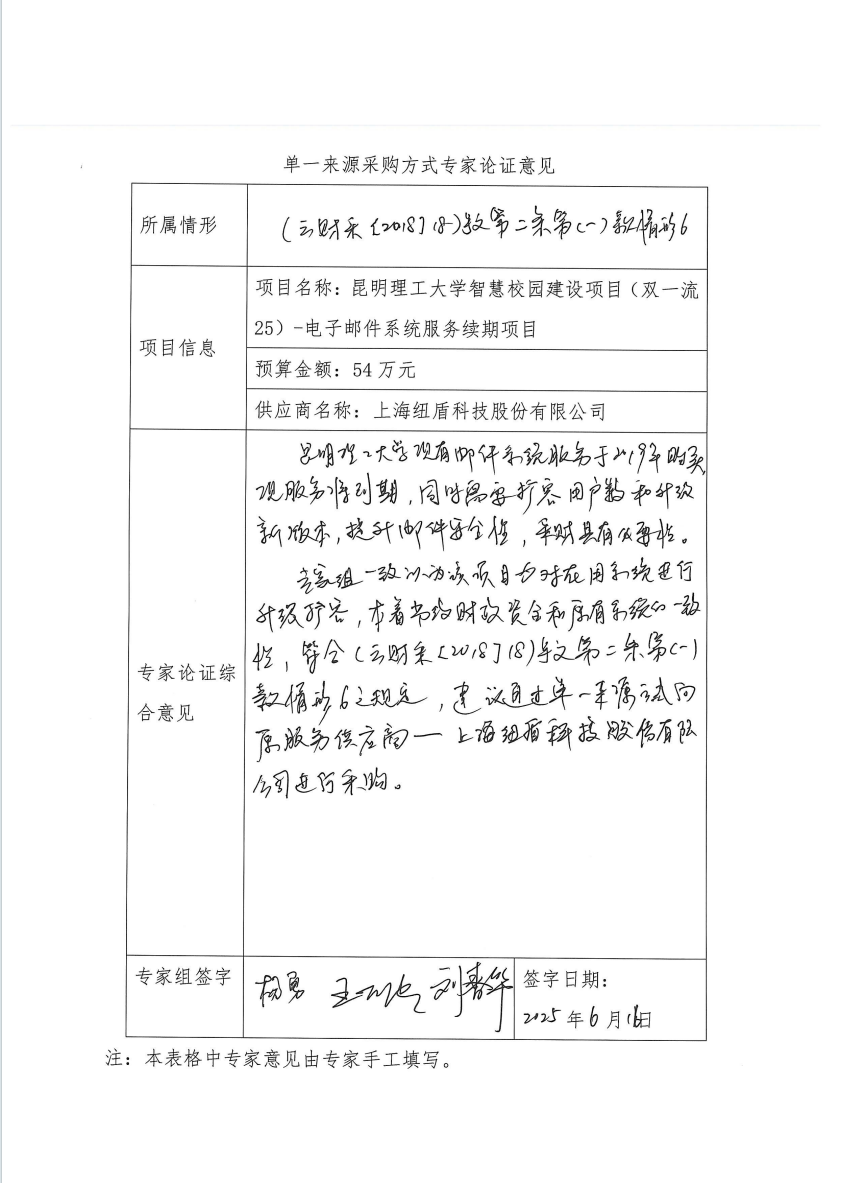 单一来源采购方式专家论证意见
所属情形
(云财采〔2018〕18)号文第二条第(一)款情形6
项目信息
项目名称：昆明理工大学智慧校园建设项目（双一流
25）-电子邮件系统服务续期项目
预算金额：54 万元
供应商名称：上海纽盾科技股份有限公司
专家论证综
合意见
昆明理工大学现有邮件系统服务于2019年购买,
现服务将到期，同时需要扩容用户数和升级
新版本，提升邮件安全性，采购具有必要性。
专家组一致认为该项目为对在用系统进行
升级扩容，本着节约财政资金和原有系统的一致
性，符合(云财采〔2018〕18)号文第二条第(一)
款情形6之规定，建议通过单一来源方式向
原服务供应商—上海纽盾科技股份有限
公司进行采购。
专家组签字
杨勇 刘春华
签字日期：
2025 年 6 月 日
注：本表格中专家意见由专家手工填写。